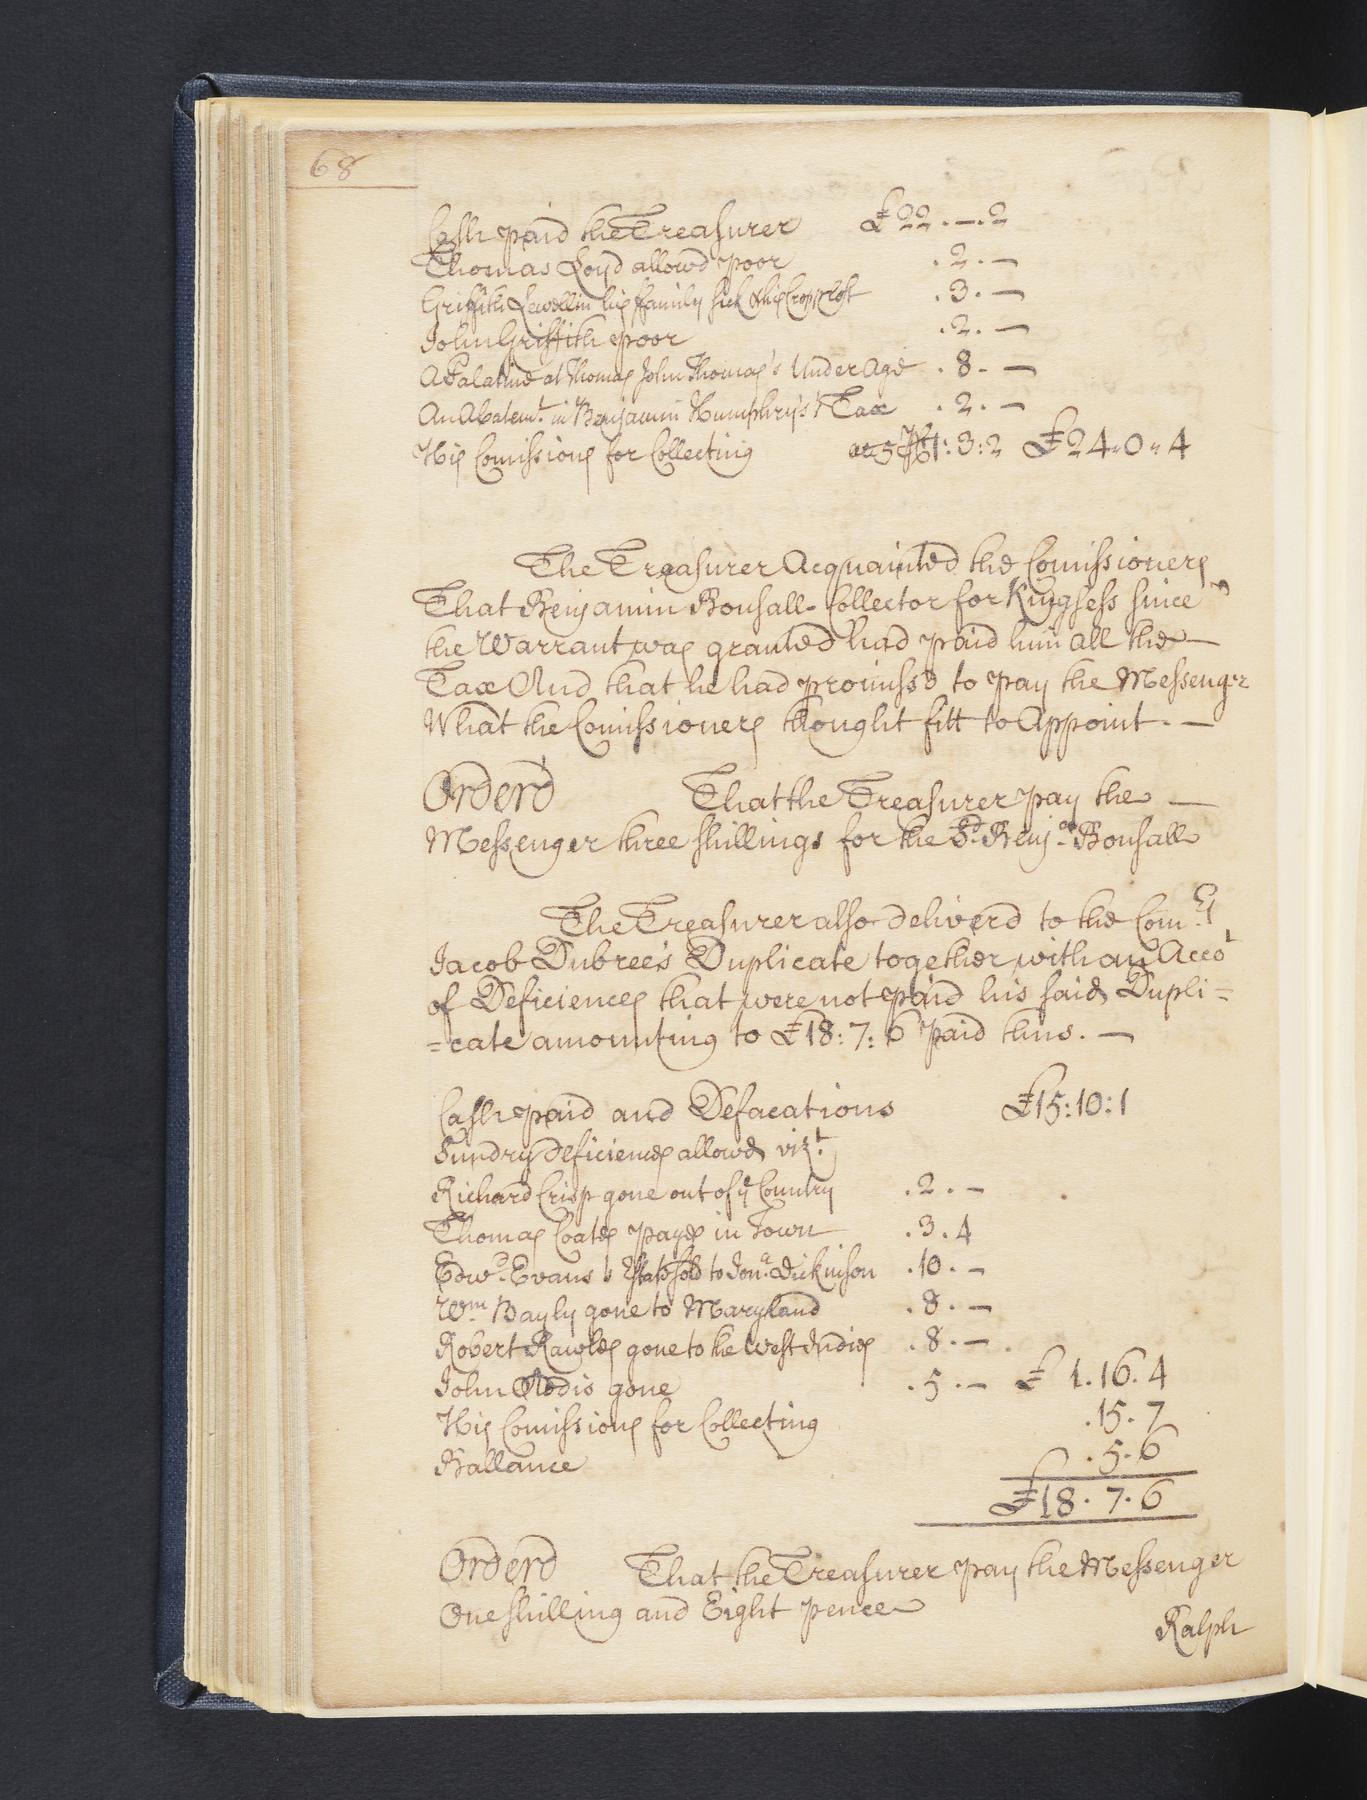 68
Cash paid the Treasurer £22.—.2
Thomas Loyd allowd poor .2.—
Griffith Lewellin his family sick & his Crop lost .3.—
John Griffith poor .2.—
A Palatine at Thomas John Thomas's Under Age .8.—
An Abatemt. in Benjamin Humphry's Tax .2.—
His Comissions for Collecting 1:3:2 £24"0"4
The Treasurer Acquainted the Comissioners
That Benjamin Bonsall Collector for Kingsess since
the Warrant was granted had paid him all the —
Tax And that he had promiss'd to pay the Messenger
What the Comissioners thought fitt to Appoint. —
Orderd That the Treasurer pay the —
Messenger three shillings for the Sd. Benja. Bonsall
The Treasurer also deliverd to the Comrs
Jacob Dubree's Duplicate together with an Accot
of Deficiences that were not paid his said Dupli=
=cate amounting to £18:7:6 paid thus. —
Cash paid and Defacations £15:10:1
Sundry Deficiences allowd vizt.
Richard Crisp gone out of ye Country .2.—
Thomas Coates payes in Town .3.4
Edwd. Evans's Estate sold to Jona. Dickinson .10.—
Wm. Bayly gone to Maryland .8.—
Robert Rawles gone to the West Indies .8.—
John Oddis gone .5.— £ 1.16.4
His Comissions for Collecting .15.7
Ballance .5.6
£18.7.6
Orderd That the Treasurer pay the Messenger
One shilling and Eight pence
Ralph